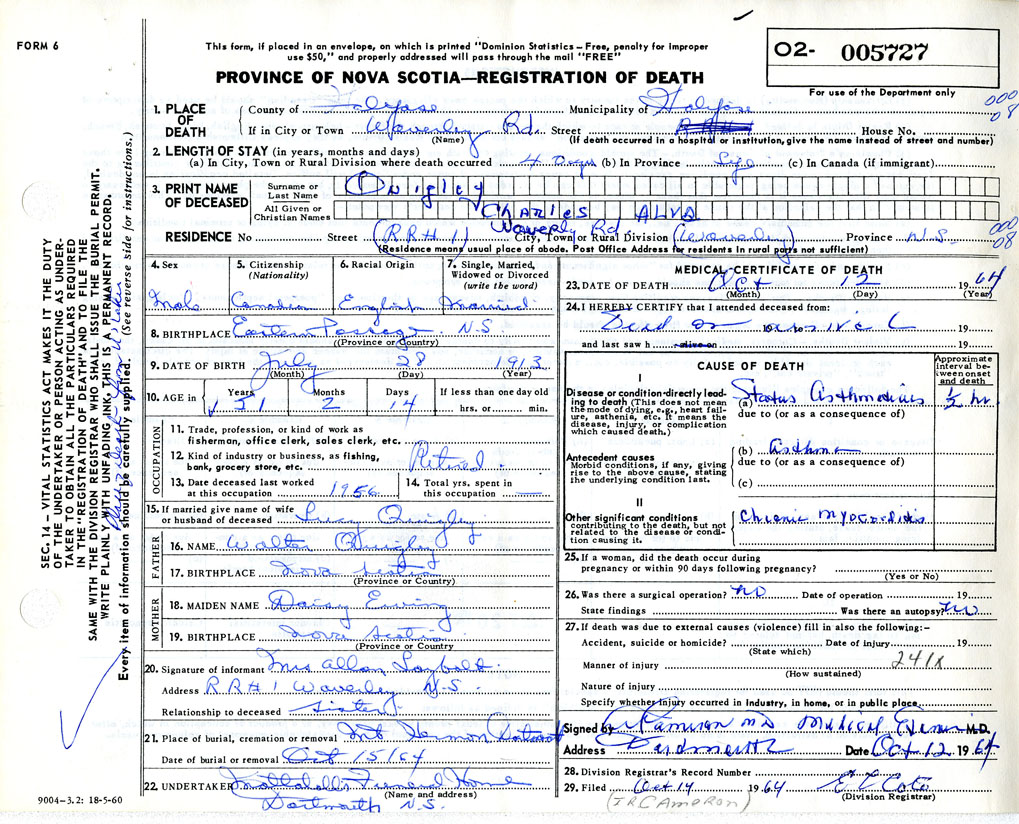 FORM 6
This form, if placed in an envelope, on which is printed "Dominion Statistics – Free, penalty for improper
use $50," and properly addressed will pass through the mail "FREE"
O2- 005727
For use of the Department only
PROVINCE OF NOVA SCOTIA—REGISTRATION OF DEATH
000
08
1. PLACE OF DEATH
County of Halifax Municipality of Halifax
If in City or Town Waverley Rd. Street House No.
(Name) (If death occurred in a hospital or institution, give the name instead of street and number)
2. LENGTH OF STAY (in years, months and days)
(a) In City, Town or Rural Division where death occurred 4 Days (b) In Province Life (c) In Canada (if immigrant)
3. PRINT NAME OF DECEASED
Surname or Last Name Quigley
All Given or Christian Names Charles Alva
Waverly Rd
RESIDENCE No Street (RRH 1) City, Town or Rural Division (Waverley) Province N.S.
(Residence means usual place of abode. Post Office Address for residents in rural parts not sufficient)
000
08
4. Sex
Male
5. Citizenship
(Nationality)
Canadian
6. Racial Origin
English
7. Single, Married,
Widowed or Divorced
(write the word)
Married
8. BIRTHPLACE Eastern Passage N.S
(Province or Country)
9. DATE OF BIRTH July 28 1913
(Month) (Day) (Year)
10. AGE in Years Months Days If less than one day old
51 2 14 hrs. or min.
OCCUPATION
11. Trade, profession, or kind of work as
fisherman, office clerk, sales clerk, etc.
12. Kind of industry or business, as fishing,
bank, grocery store, etc. Retired
13. Date deceased last worked
at this occupation 1956
14. Total yrs. spent in
this occupation
15. If married give name of wife
or husband of deceased Lucy Quigley
FATHER
16. NAME Walter Quigley
17. BIRTHPLACE Nova Scotia
(Province or Country)
MOTHER
18. MAIDEN NAME Daisy Ewing
19. BIRTHPLACE Nova Scotia
(Province or Country)
20. Signature of informant Mrs Allan
Address RRH 1 Waverley N.S.
Relationship to deceased Sister
21. Place of burial, cremation or removal Mt Hermon Dartmouth
Date of burial or removal Oct 15/64
22. UNDERTAKER Funeral Home
(Name and address)
Dartmouth N.S.
9004–3.2: 18-5-60
MEDICAL CERTIFICATE OF DEATH
23. DATE OF DEATH Oct 12 1964
(Month) (Day) (Year)
24. I HEREBY CERTIFY that I attended deceased from:
Dead on arrival 19
and last saw h alive on 19
CAUSE OF DEATH
Approximate
interval be-
tween onset
and death
I
Disease or condition directly lead-
ing to death (This does not mean
the mode of dying, e.g., heart fail-
ure, asthenia, etc. It means the
disease, injury, or complication
which caused death.)
(a) Status Asthmaticus ½ hr
due to (or as a consequence of)
Antecedent causes
Morbid conditions, if any, giving
rise to the above cause, stating
the underlying condition last.
(b) Asthma
due to (or as a consequence of)
(c)
II
Other significant conditions
contributing to the death, but not
related to the disease or condi-
tion causing it.
Chronic myocarditis
25. If a woman, did the death occur during
pregnancy or within 90 days following pregnancy?
(Yes or No)
26. Was there a surgical operation? No Date of operation 19
State findings Was there an autopsy? No
27. If death was due to external causes (violence) fill in also the following:–
Accident, suicide or homicide? Date of injury 19
(State which)
Manner of injury 241X
(How sustained)
Nature of injury
Specify whether injury occurred in Industry, in home, or in public place
Signed by MD Medical M.D.
Address Dartmouth Date Oct 12 1964
28. Division Registrar's Record Number
29. Filed Oct 14 1964
(Division Registrar)
SEC. 14 – VITAL STATISTICS ACT MAKES IT THE DUTY
OF THE UNDERTAKER OR PERSON ACTING AS UNDER-
TAKER TO OBTAIN ALL THE PARTICULARS REQUIRED
IN THE "REGISTRATION OF DEATH" AND TO FILE THE
SAME WITH THE DIVISION REGISTRAR WHO SHALL ISSUE THE BURIAL PERMIT.
WRITE PLAINLY WITH UNFADING INK, THIS IS A PERMANENT RECORD.
Every item of information should be carefully supplied. (See reverse side for instructions.)